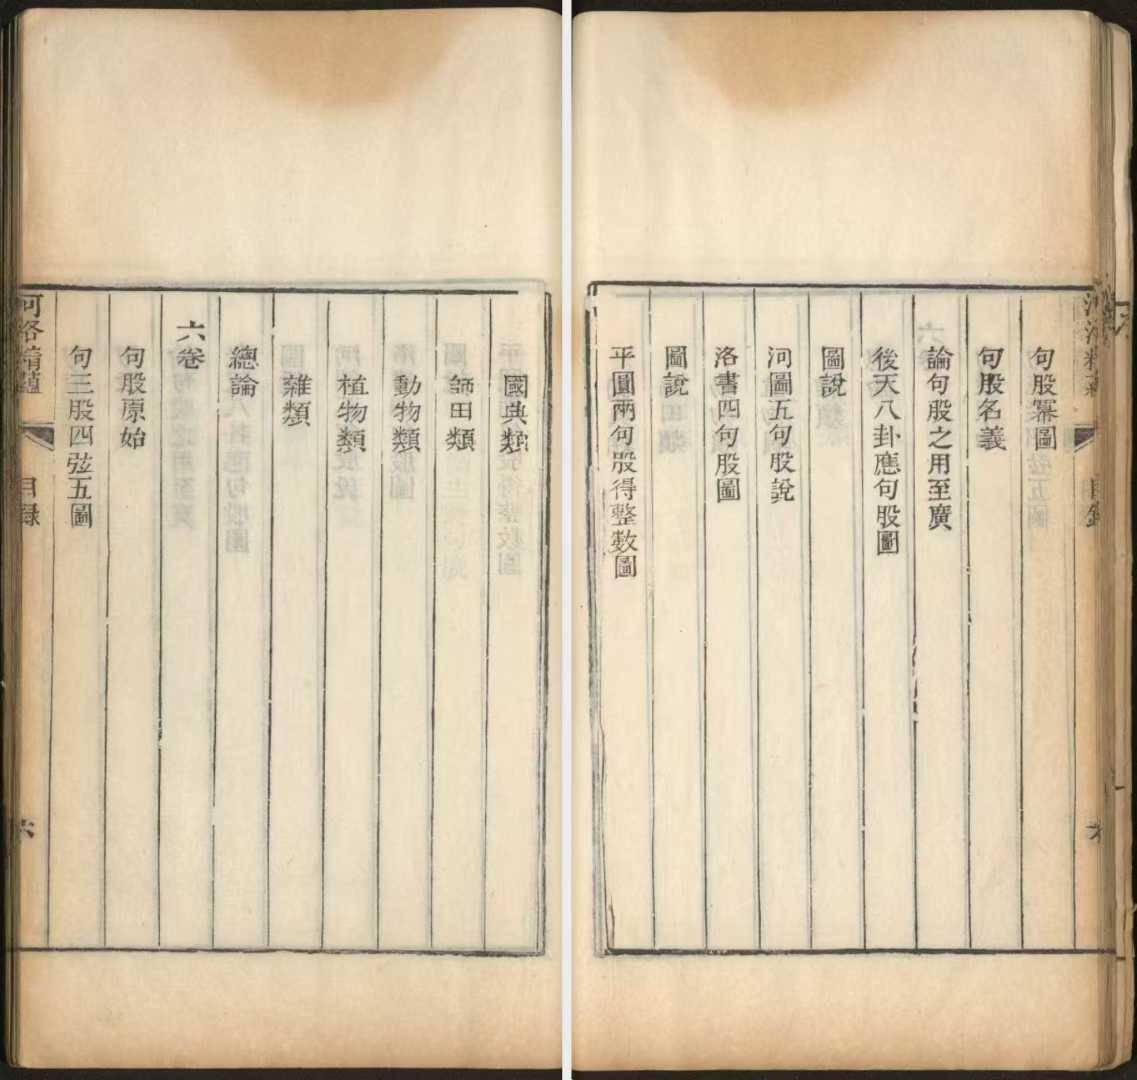 國典類
師田類
動物類
植物類
雜類
總論
六卷
句股原始
句三股四弦五圖
河洛精蘊 目錄 六
句股冪圖
句股名義
論句股之用至廣
後天八卦應句股圖
圖說
河圖五句股說
洛書四句股圖
圖說
平圓兩句股得整數圖